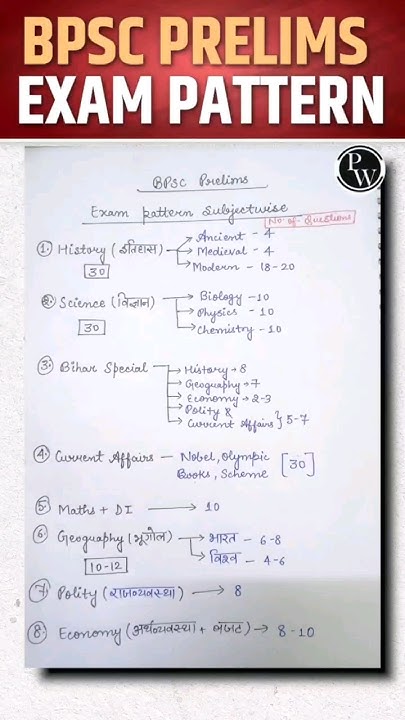 BPSC PRELIMS
EXAM PATTERN
PW
BPSC Prelims
Exam pattern Subjectwise
No of Questions
1. History (इतिहास) → Ancient - 4
→ Medieval - 4
30 → Modern - 18-20
2. Science (विज्ञान) → Biology - 10
→ Physics - 10
30 → Chemistry - 10
3. Bihar Special → History → 8
→ Geography → 7
→ Economy → 2-3
→ Polity &
→ Current Affairs } 5-7
4. Current Affairs — Nobel, Olympic
Books, Scheme [30]
5. Maths + DI → 10
6. Geography (भूगोल) → भारत - 6-8
10-12 → विश्व - 4-6
7. Polity (राजव्यवस्था) → 8
8. Economy (अर्थव्यवस्था + बजट) → 8-10